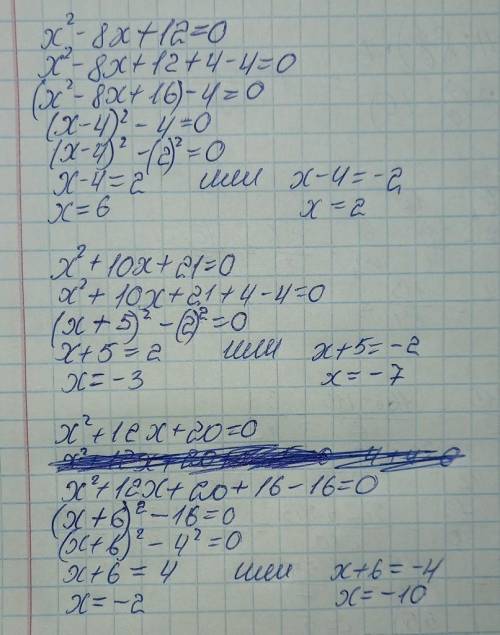 x² - 8x + 12 = 0
x² - 8x + 12 + 4 - 4 = 0
(x² - 8x + 16) - 4 = 0
(x - 4)² - 4 = 0
(x - 4)² - (2)² = 0
x - 4 = 2 или x - 4 = -2
x = 6 x = 2
x² + 10x + 21 = 0
x² + 10x + 21 + 4 - 4 = 0
(x + 5)² - (2)² = 0
x + 5 = 2 или x + 5 = -2
x = -3 x = -7
x² + 12x + 20 = 0
x² + 12x + 20 + 16 - 16 = 0
(x + 6)² - 16 = 0
(x + 6)² - 4² = 0
x + 6 = 4 или x + 6 = -4
x = -2 x = -10